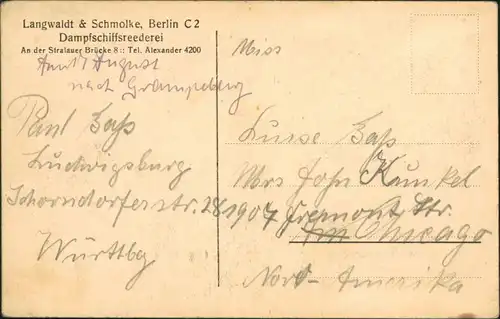 Langwaldt & Schmolke, Berlin C 2
Dampfschiffsreederei
An der Stralauer Brücke 8 :: Tel. Alexander 4200
August
nach
Paul Zaß
Ludwigsburg
Schorndorferstr. 28
Württbg
Miss
Luise Zaß
Mrs John Kunkel
1907 Fremont Str.
Chicago
Nord-Amerika